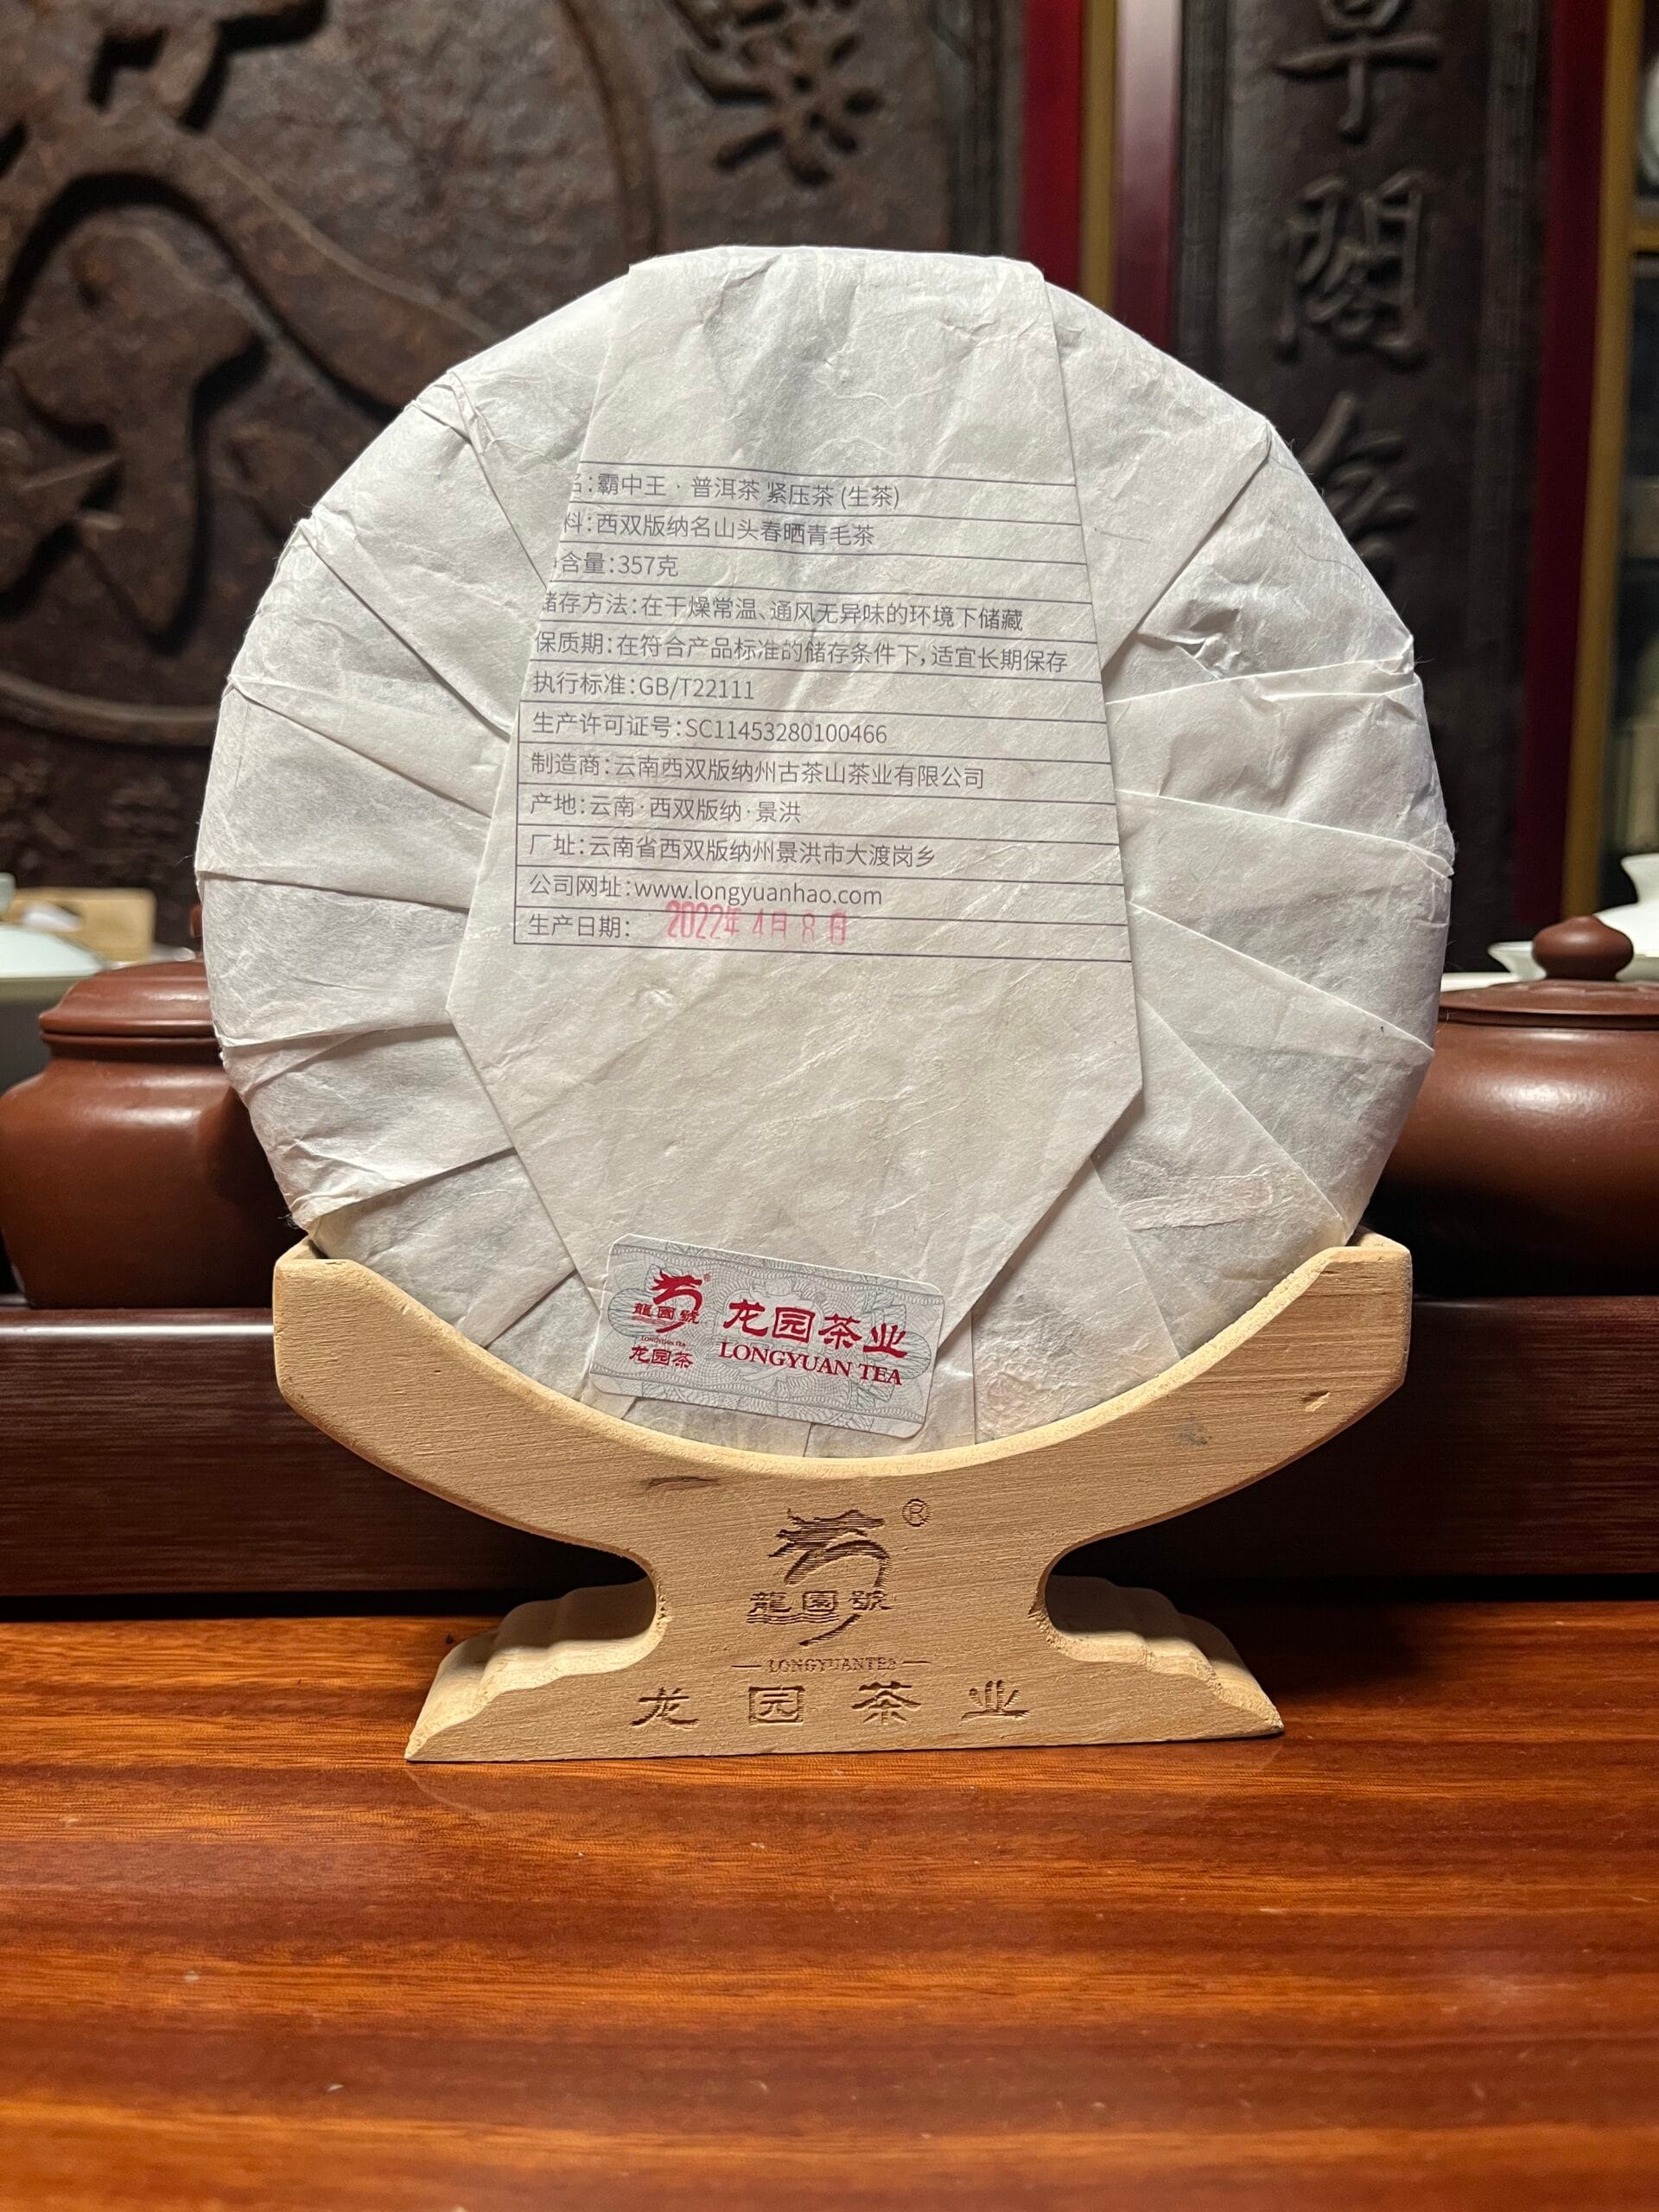 草
閣
名：霸中王 · 普洱茶 紧压茶 (生茶)
料：西双版纳名山头春晒青毛茶
含量：357克
储存方法：在干燥常温、通风无异味的环境下储藏
保质期：在符合产品标准的储存条件下，适宜长期保存
执行标准：GB/T22111
生产许可证号：SC11453280100466
制造商：云南西双版纳州古茶山茶业有限公司
产地：云南 · 西双版纳 · 景洪
厂址：云南省西双版纳州景洪市大渡岗乡
公司网址：www.longyuanhao.com
生产日期： 2022年 4月 8日
龍園號
LONGYUAN TEA
龙园茶
龙园茶业
LONGYUAN TEA
®
龍園號
LONGYUANTEA
龙园茶业